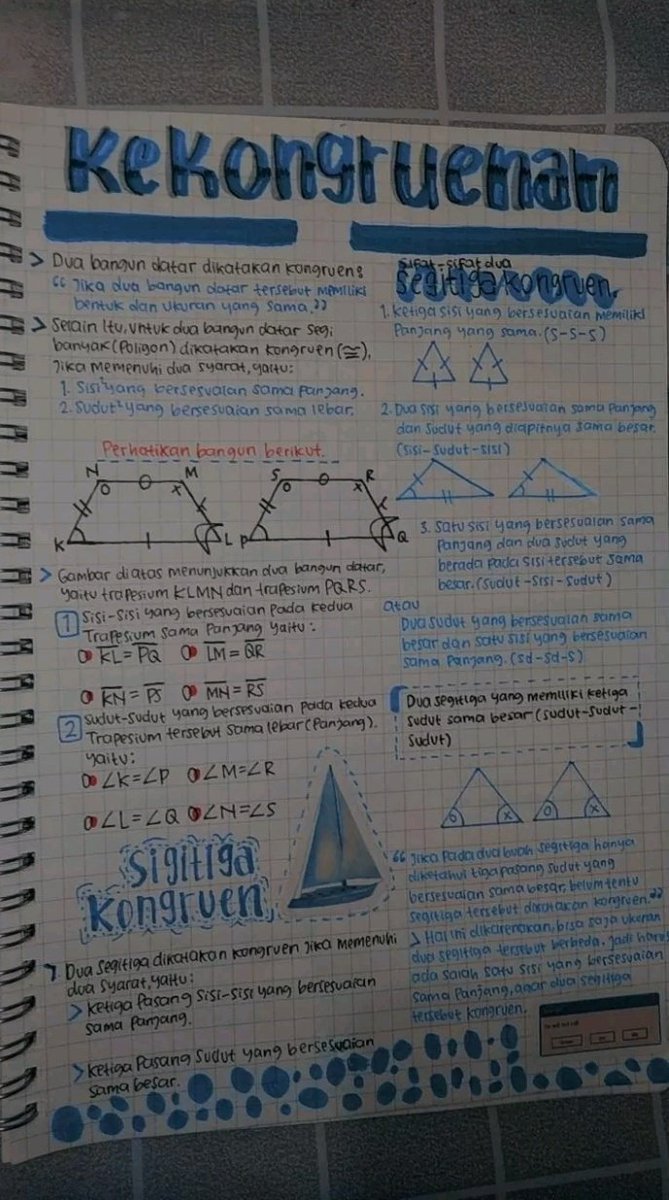 Kekongruenan
> Dua bangun datar dikatakan kongruen:
“ Jika dua bangun datar tersebut memiliki
bentuk dan ukuran yang sama.”
> Selain itu, untuk dua bangun datar segi
banyak (Poligon) dikatakan kongruen (≅),
Jika memenuhi dua syarat, yaitu:
1. Sisi² yang bersesuaian sama panjang.
2. Sudut² yang bersesuaian sama lebar.
Perhatikan bangun berikut.
N M
K L
S R
P Q
> Gambar diatas menunjukkan dua bangun datar,
yaitu trapesium KLMN dan trapesium PQRS.
1 Sisi-sisi yang bersesuaian pada kedua
Trapesium sama panjang yaitu:
KL = PQ LM = QR
KN = PS MN = RS
2 Sudut-sudut yang bersesuaian pada kedua
Trapesium tersebut sama lebar (Panjang).
yaitu:
∠K=∠P ∠M=∠R
∠L=∠Q ∠N=∠S
Sigitiga
Kongruen
7. Dua segitiga dikatakan kongruen jika memenuhi
dua syarat, yaitu:
> Ketiga Pasang sisi-sisi yang bersesuaian
sama panjang.
> Ketiga Pasang sudut yang bersesuaian
sama besar.
Sifat-sifat dua
segitiga kongruen.
1. Ketiga sisi yang bersesuaian memiliki
Panjang yang sama. (S-S-S)
2. Dua sisi yang bersesuaian sama panjang
dan sudut yang diapitnya sama besar.
(sisi-sudut-sisi)
3. Satu sisi yang bersesuaian sama
Panjang dan dua sudut yang
berada pada sisi tersebut sama
besar. (sudut-sisi-sudut)
atau
Dua sudut yang bersesuaian sama
besar dan satu sisi yang bersesuaian
sama panjang. (sd-sd-s)
Dua segitiga yang memiliki ketiga
sudut sama besar (sudut-sudut-
sudut)
o x o x
“ Jika pada dua buah segitiga hanya
diketahui tiga pasang sudut yang
bersesuaian sama besar, belum tentu
segitiga tersebut dikatakan kongruen.”
> Hal ini dikarenakan, bisa saja ukuran
dua segitiga tersebut berbeda, jadi harus
ada salah satu sisi yang bersesuaian
sama panjang, agar dua segitiga
tersebut kongruen.